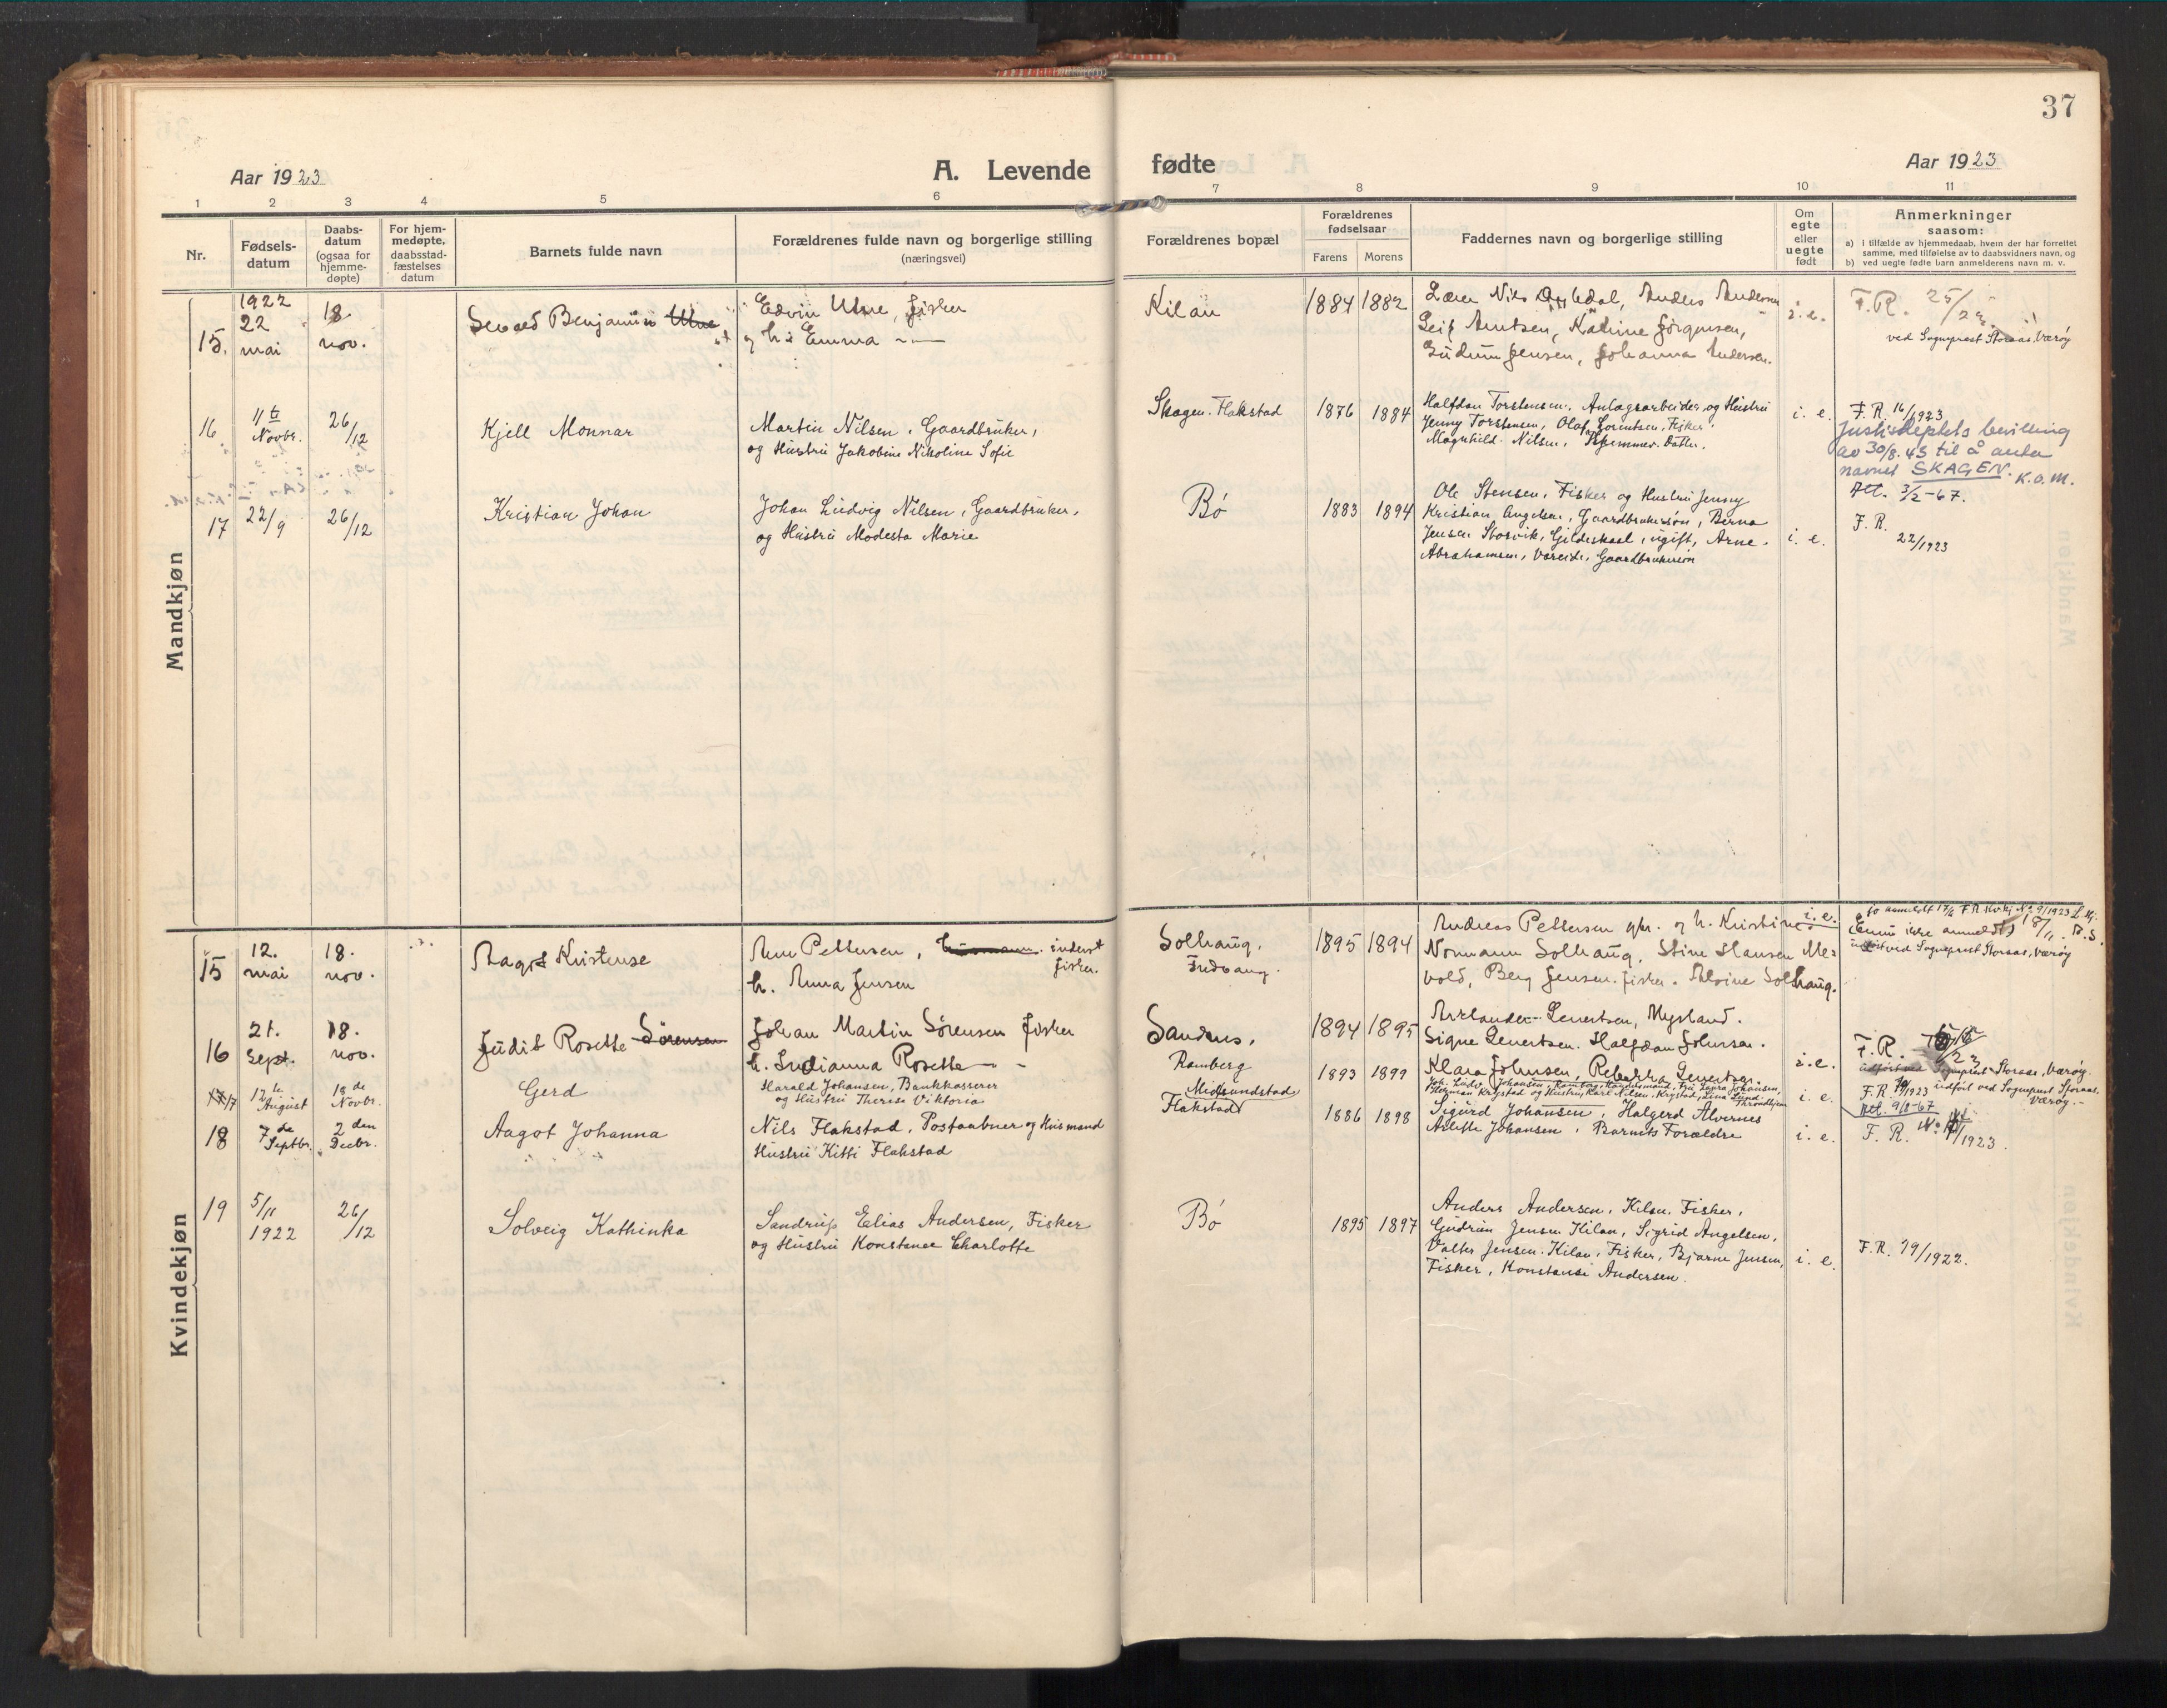 37
Aar 1923
A. Levende fødte
Aar 1923
1 2 3 4 5 6 7 8 9 10 11
Nr.
Fødsels-
datum
Daabs-
datum
(ogsaa for
hjemme-
døpte)
For hjem-
medøpte,
daabsstad-
fæstelses
datum
Barnets fulde navn
Forældrenes fulde navn og borgerlige stilling
(næringsvei)
Forældrenes bopæl
Forældrenes
fødselsaar
Farens Morens
Faddernes navn og borgerlige stilling
Om
egte
eller
uegte
født
Anmerkninger
saasom:
a) i tilfælde av hjemmedaab, hvem der har forrettet
samme, med tilføielse av to daabsvidners navn, og
b) ved uegte fødte barn anmelderens navn m. v.
Mandkjøn
15.
1922
22
mai
18
nov.
Benjamin Utne
Edvin Utne, fisker
og h. Emma
Kilan
1884 1882
Lærer Nils, Anders Andersen
Leif Arntsen, Katrine Jørgensen,
Gudrun Jensen, Johanna Andersen.
i. e.
F. R. 25/
ved Sogneprest Storaas, Værøy
16
11te
Novbr.
26/12
Kjell Monnar
Martin Nilsen, Gaardbruker,
og Hustru Jakobine Nikoline Sofie
Skagen. Flakstad
1876 1884
Halfdan Torstensen, Anlægsarbeider og Hustru
Jenny Torstensen, Olaf Lorentsen, Fisker,
Magnhild Nilsen, Hjemmev. Datter.
i. e.
F. R. 16/1923
Justisdeptets bevilling
av 30/8. 45 til å anta
navnet SKAGEN. K.O.M.
Att. 3/2-67.
17
22/9
26/12
Kristian Johan
Johan Ludvig Nilsen, Gaardbruker,
og Hustru Modesta Marie
Bø
1883 1894
Ole Stensen, Fisker og Hustru Jenny
Kristian Angelsen, Gaardbrukersøn, Berna
Jensen Storvik, Gildeskaal, ugift, Arne
Abrahamsen, Vareide, Gaardbrukersøn
i. e.
F. R.
22/1923
Kvindekjøn
15
12.
mai
18.
nov.
Kristense
Pettersen, inderst
fisker.
h. Anna Jensen
Solhaug,
Fredvang.
1895 1894
Andreas Pettersen gbr. og h. Kristine
Normann Solhaug, Stine Hansen Mel-
vold, Berg Jensen. fisker. Alvine Solhaug.
i. e.
ved Sogneprest Storaas, Værøy
16
21.
Sept.
18.
nov.
Judit Rosette Sørensen
Johan Martin Sørensen fisker
h. Indianna Rosette
Sandnes,
1894 1895
Lenertsen, Mysland.
Signe Lenertsen. Halfdan Johnsen.
Klara Johnsen, Rebekka Lenertsen.
i. e.
F. R.
indført ved Sogneprest Storaas, Værøy.
17
12te
August
18de
Novbr.
Gerd
Harald Johansen, Bankkasserer
og Hustru Therese Viktoria
Ramberg
Midsundstad
1893 1899
Joh. Ludv. Johansen, Ramberg, Handelsmand, Fru Laura Johansen,
Herman Krystad og Hustru, Kare Nilsen, Krystad, Lina Lund, Throndhjem
i. e.
F. R. 10/1923 indført ved Sogneprest Storaas.
Værøy.
Att. 9/8-67
18
7de
Septbr.
2den
Decbr.
Aagot Johanna
Nils Flakstad, Postaabner og Husmand
Hustru Kitti Flakstad
Flakstad
1886 1898
Sigurd Johansen, Halgerd Alvernes
Johansen, Barnets Forældre
i. e.
F. R. /1923.
19
5/11
1922
26/12
Solveig Kathinka
Sandrup Elias Andersen, Fisker
og Hustru Konstance Charlotte
Bø
1895 1897
Anders Andersen, Kilan, Fisker,
Gudrun Jensen Kilan, Sigrid Angelsen,
Valter Jensen. Kilan, Fisker, Bjarne Jensen,
Fisker, Konstansi Andersen.
i. e.
F. R. 19/1922.